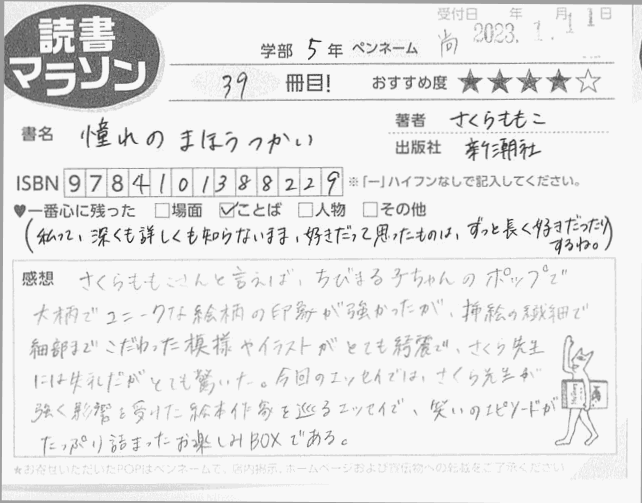 読書
マラソン
受付日 年 月 日
2023. 1. 11
学部 5年 ペンネーム 尚
39 冊目! おすすめ度 ★★★★☆
書名 憧れのまほうつかい
著者 さくらももこ
出版社 新潮社
ISBN 9784101388229 ※「ー」ハイフンなしで記入してください。
♥一番心に残った □場面 ☑ことば □人物 □その他
(私って、深くも詳しくも知らないまま、好きだって思ったものは、ずっと長く好きだったり
するね。)
感想 さくらももこさんと言えば、ちびまる子ちゃんのポップで
大柄でユニークな絵柄の印象が強かったが、挿絵の繊細で
細部までこだわった模様やイラストがとても綺麗で、さくら先生
には失礼だがとても驚いた。今回のエッセイでは、さくら先生が
強く影響を受けた絵本作家を巡るエッセイで、笑いのエピソードが
たっぷり詰まったお楽しみBOXである。
★お寄せいただいたPOPはペンネームで、店内掲示、ホームページおよび宣伝物への転載をご了承ください